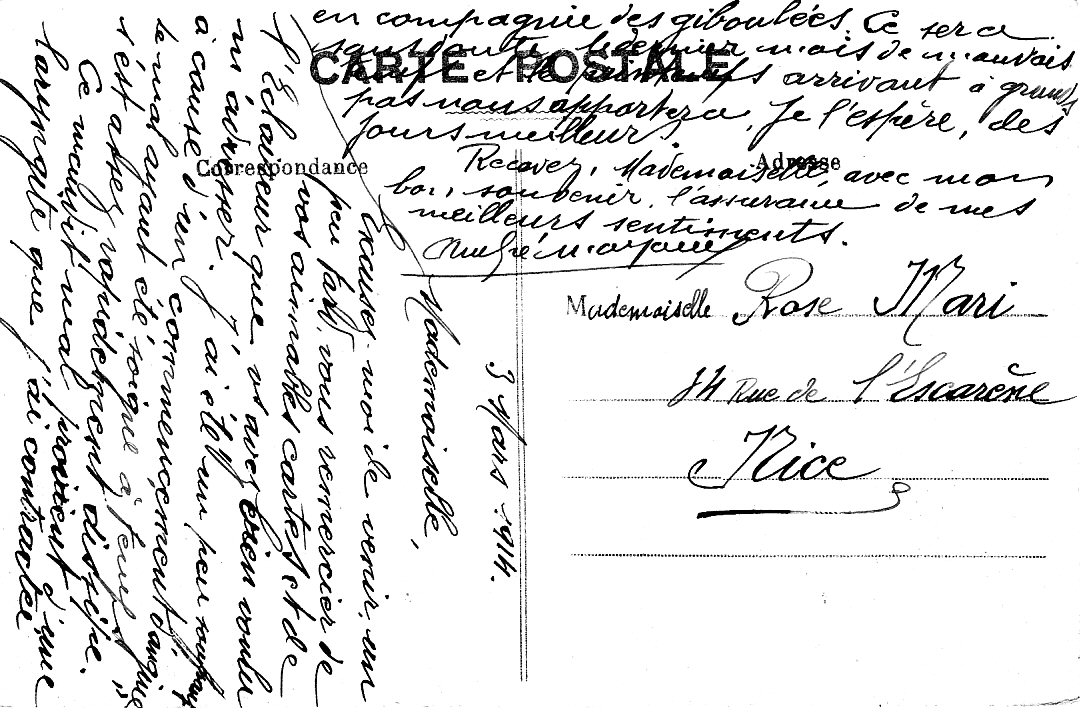 CARTE POSTALE
Correspondance
Adresse
3 Mars 1914.
Mademoiselle,
Excusez-moi de venir un
peu tard vous remercier de
vos aimables cartes et de
l'Eclaireur que vs avez bien voulu
m'adresser. J'ai été un peu souffrant
à cause d'un commencement d'angine
le mal ayant été soigné à temps
s'est assez rapidement dissipé.
Ce maudit mal provient d'une
que j'ai contractée
en compagnie des giboulées. Ce sera
dernier mois de mauvais
temps et le printemps arrivant à grands
pas nous apportera, je l'espère, des
jours meilleurs.
Recevez, Mademoiselle, avec mon
bon souvenir, l'assurance de mes
meilleurs sentiments.
Mademoiselle Rose Mari
14 Rue de l'Escarène
Nice